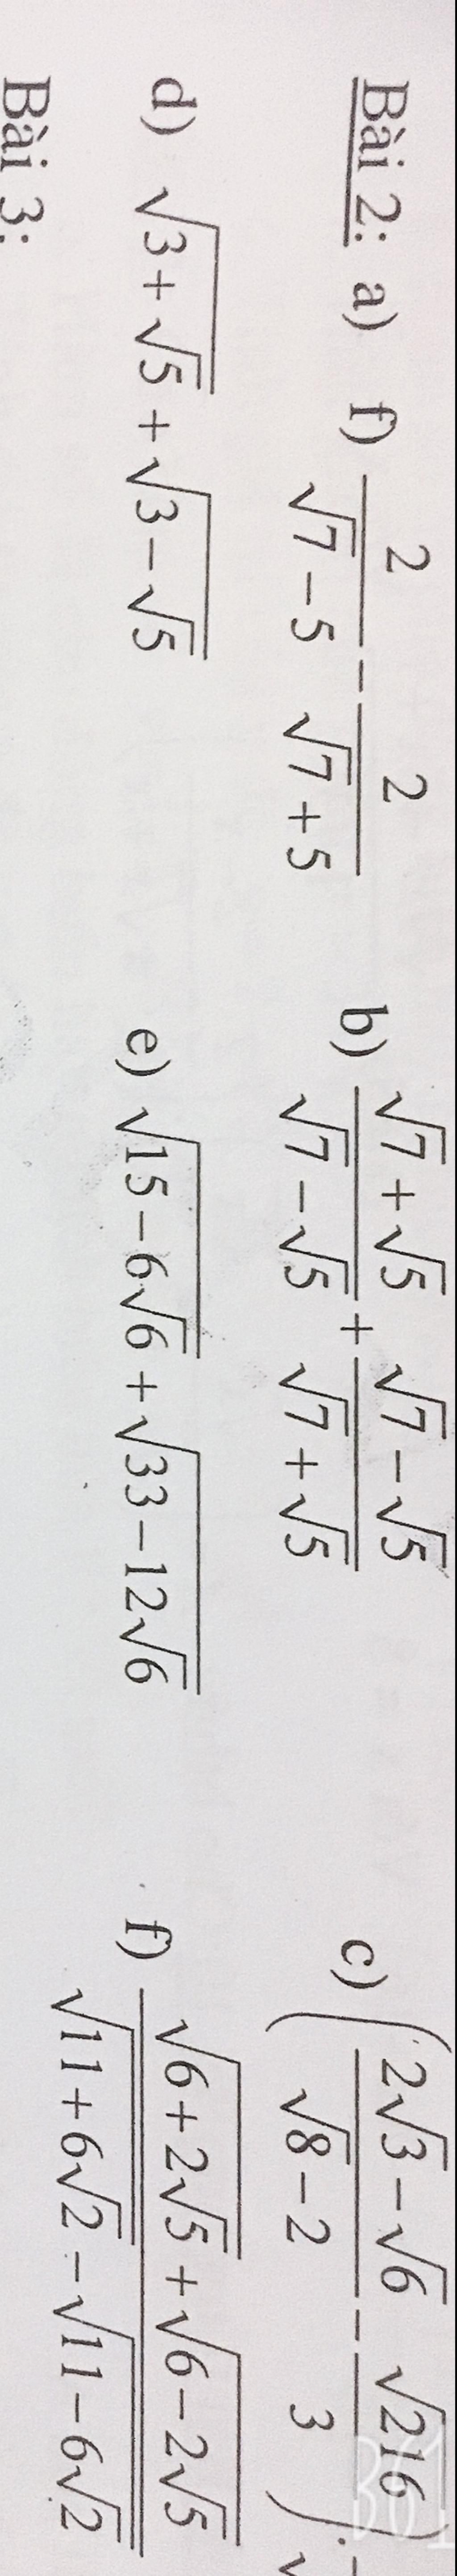 Bài 2: a) f) $\frac{2}{\sqrt{7}-5}-\frac{2}{\sqrt{7}+5}$ b) $\frac{\sqrt{7}+\sqrt{5}}{\sqrt{7}-\sqrt{5}}+\frac{\sqrt{7}-\sqrt{5}}{\sqrt{7}+\sqrt{5}}$ c) $\left(\frac{2\sqrt{3}-\sqrt{6}}{\sqrt{8}-2}-\frac{\sqrt{216}}{3}\right).$
d) $\sqrt{3+\sqrt{5}}+\sqrt{3-\sqrt{5}}$ e) $\sqrt{15-6\sqrt{6}}+\sqrt{33-12\sqrt{6}}$ f) $\frac{\sqrt{6+2\sqrt{5}}+\sqrt{6-2\sqrt{5}}}{\sqrt{11+6\sqrt{2}}-\sqrt{11-6\sqrt{2}}}$
Bài 3: